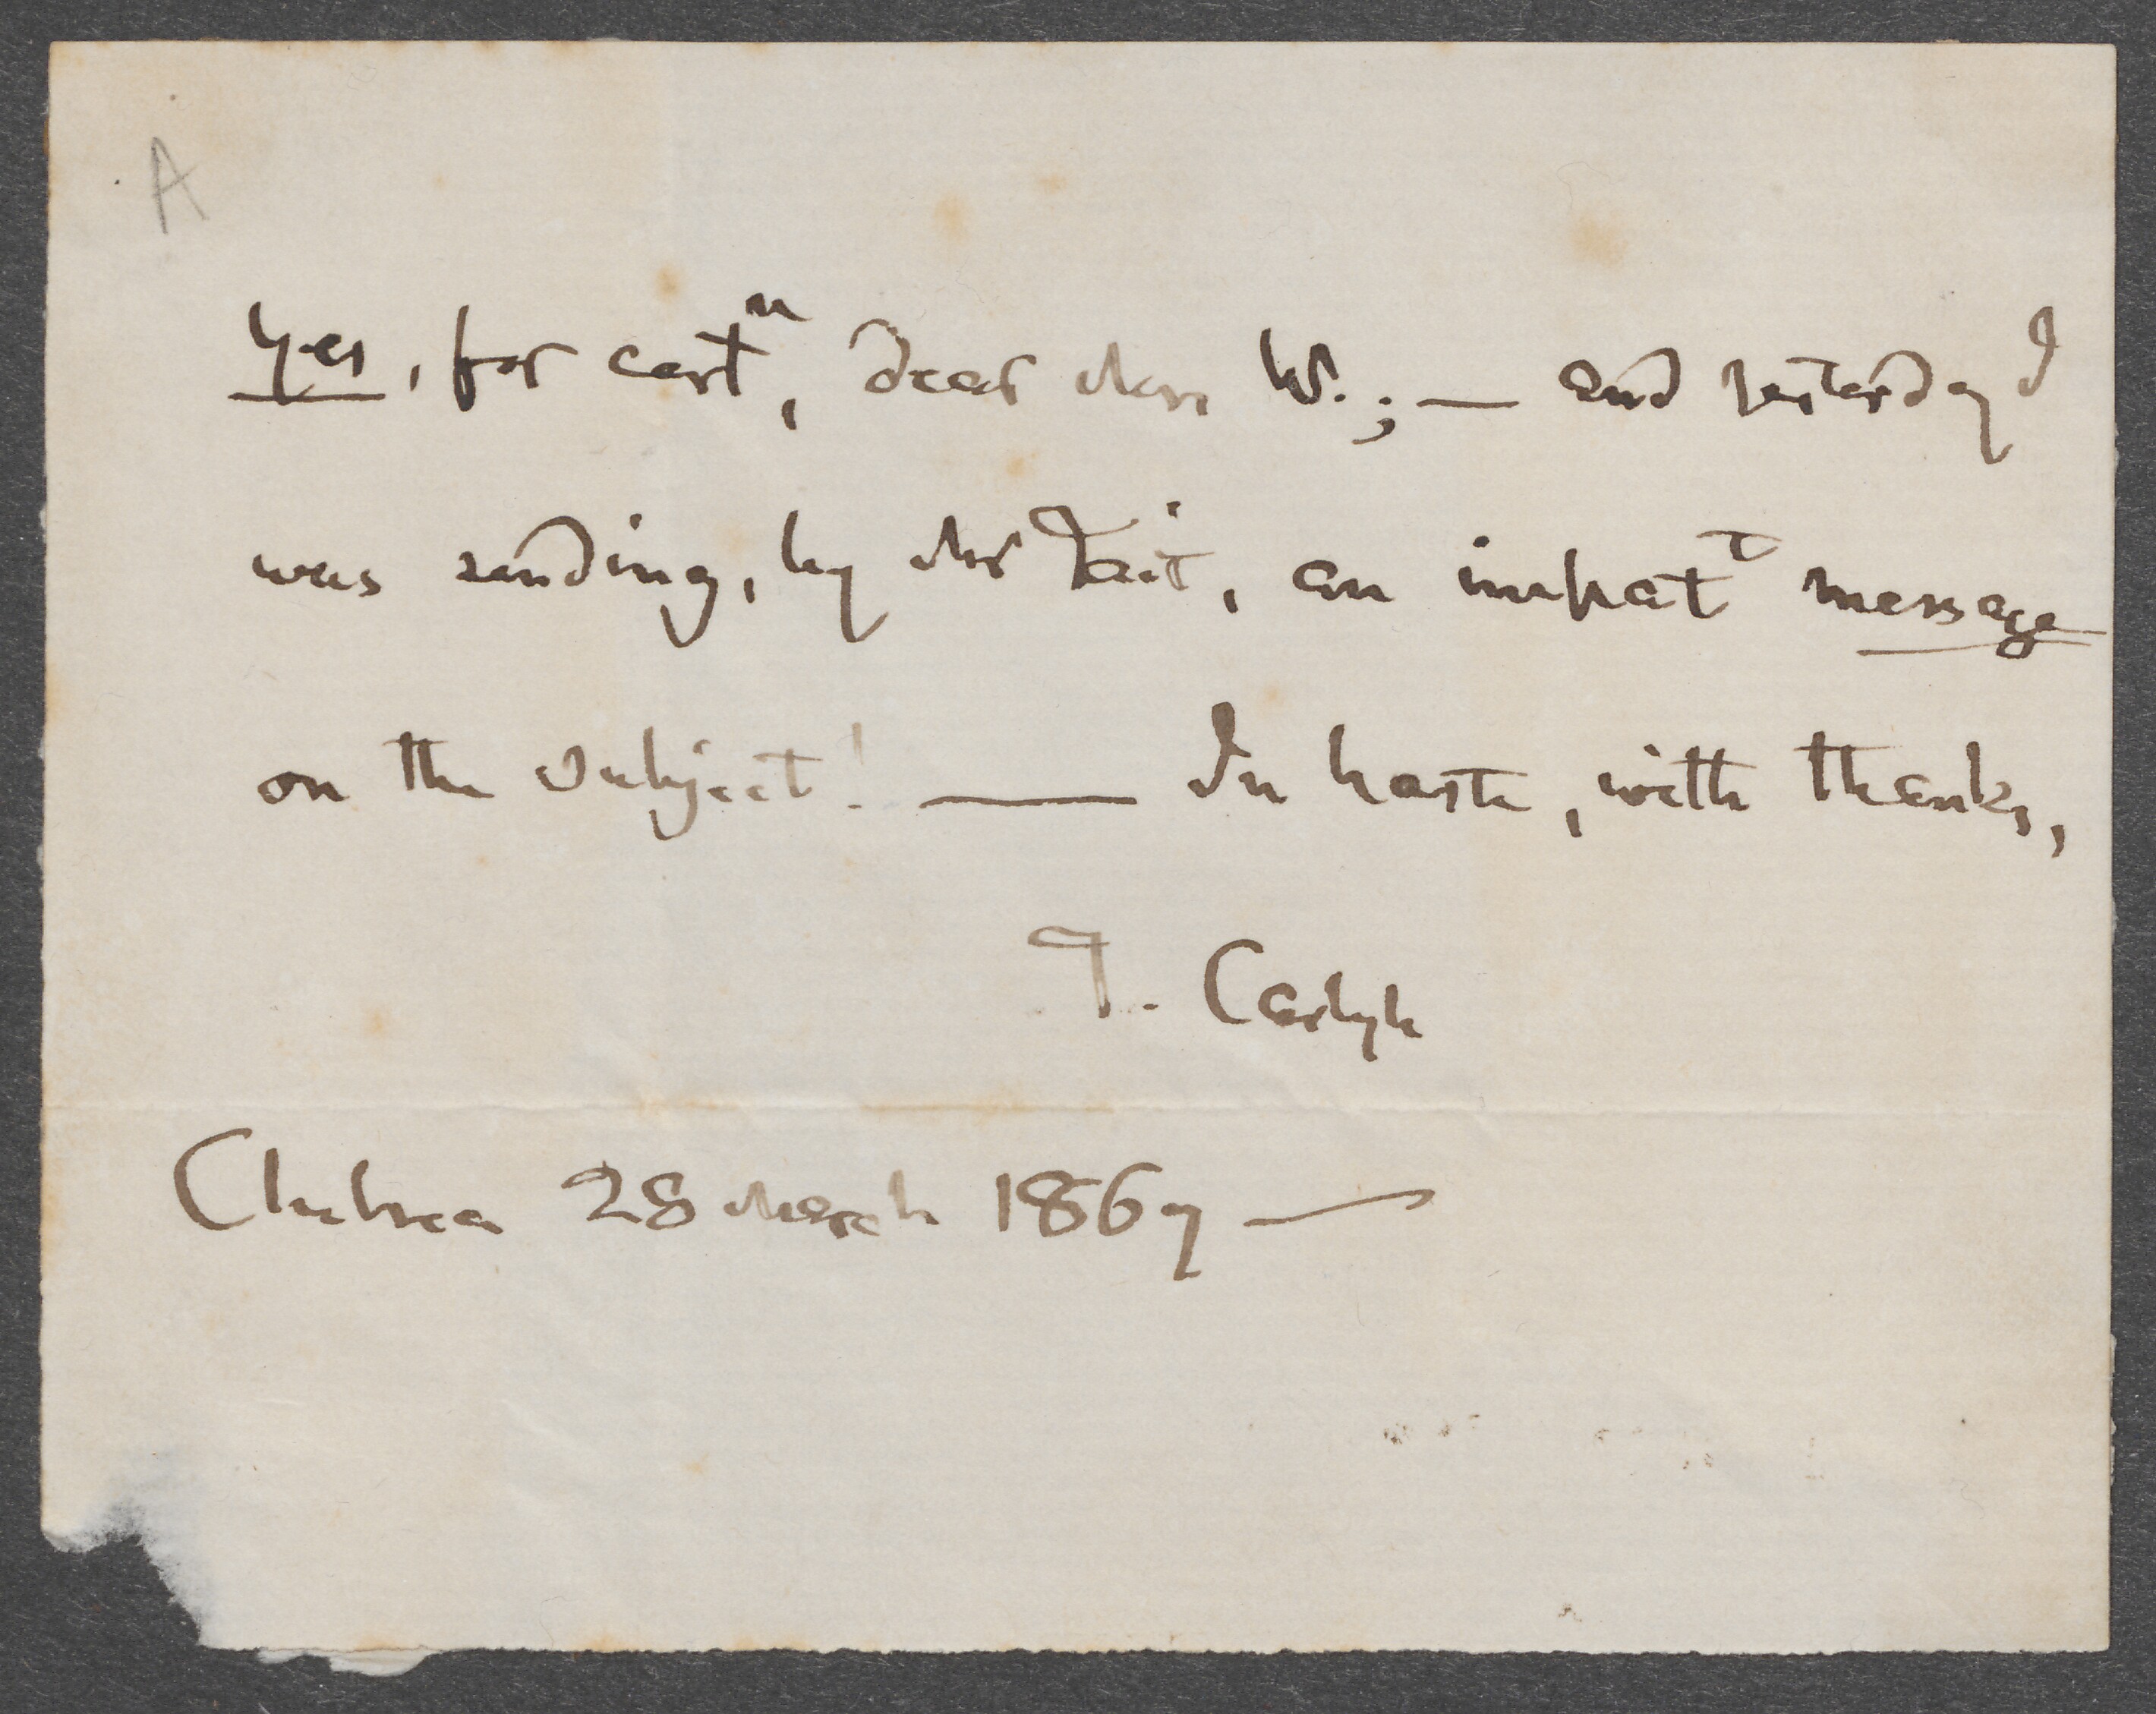 A
Yes, for certn, dear Mrs W.; — and yesterday I
was sending, by Mr Tait, an impatt message
on the subject! — In haste, with thanks,
T. Carlyle
Chelsea 28 March 1867 —